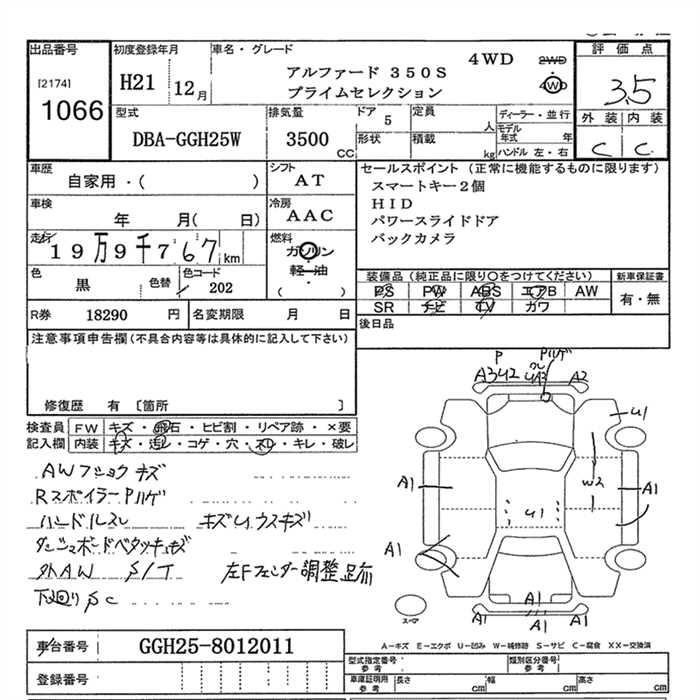 出品番号
[2174]
1066
初度登録年月
H21 12月
車名・グレード
アルファード 350S
プライムセレクション
4WD
2WD
4WD
評価点
3.5
外装 内装
C C
型式
DBA-GGH25W
排気量
3500
CC
ドア 5
形状
定員 人
積載 kg
ディーラー・並行
モデル年式 年
ハンドル 左・右
車歴
自家用・( )
シフト
AT
車検
年 月( 日)
冷房
AAC
走行
19万9千767 km
燃料
ガソリン
軽油
( )
色
黒
色替
色コード
202
R券 18290 円
名変期限 月 日
セールスポイント (正常に機能するものに限ります)
スマートキー2個
HID
パワースライドドア
バックカメラ
装備品 (純正品に限り○をつけてください)
PS PW ABS エアB AW
SR ナビ TV カワ
新車保証書
有・無
後日品
注意事項申告欄(不具合内容等は具体的に記入して下さい)
修復歴 有 〔箇所 〕
検査員記入欄
FW キズ・飛石・ヒビ割・リペア跡・×要
内装 キズ・汚レ・コゲ・穴・スレ・キレ・破レ
AWフショク キズ
RスポイラーPハゲ
ハンドルスレ キズUウスキズ
ダッシュボードベタツキ,キズ
外AW S/T 左Fフェンダー調整足ﾗ
下廻りSC
P
A3U2
Pハゲ
UA3
A2
U1
A1
W2
A1
U1
A1
A1
A1
A1
A1
スペア
A-キズ E-エクボ U-凹み W-補修跡 S-サビ C-腐食 XX-交換済
車台番号
GGH25-8012011
登録番号
型式指定番号
参考
類別区分番号
参考
車庫証明用
参考
長さ cm
幅 cm
高さ cm